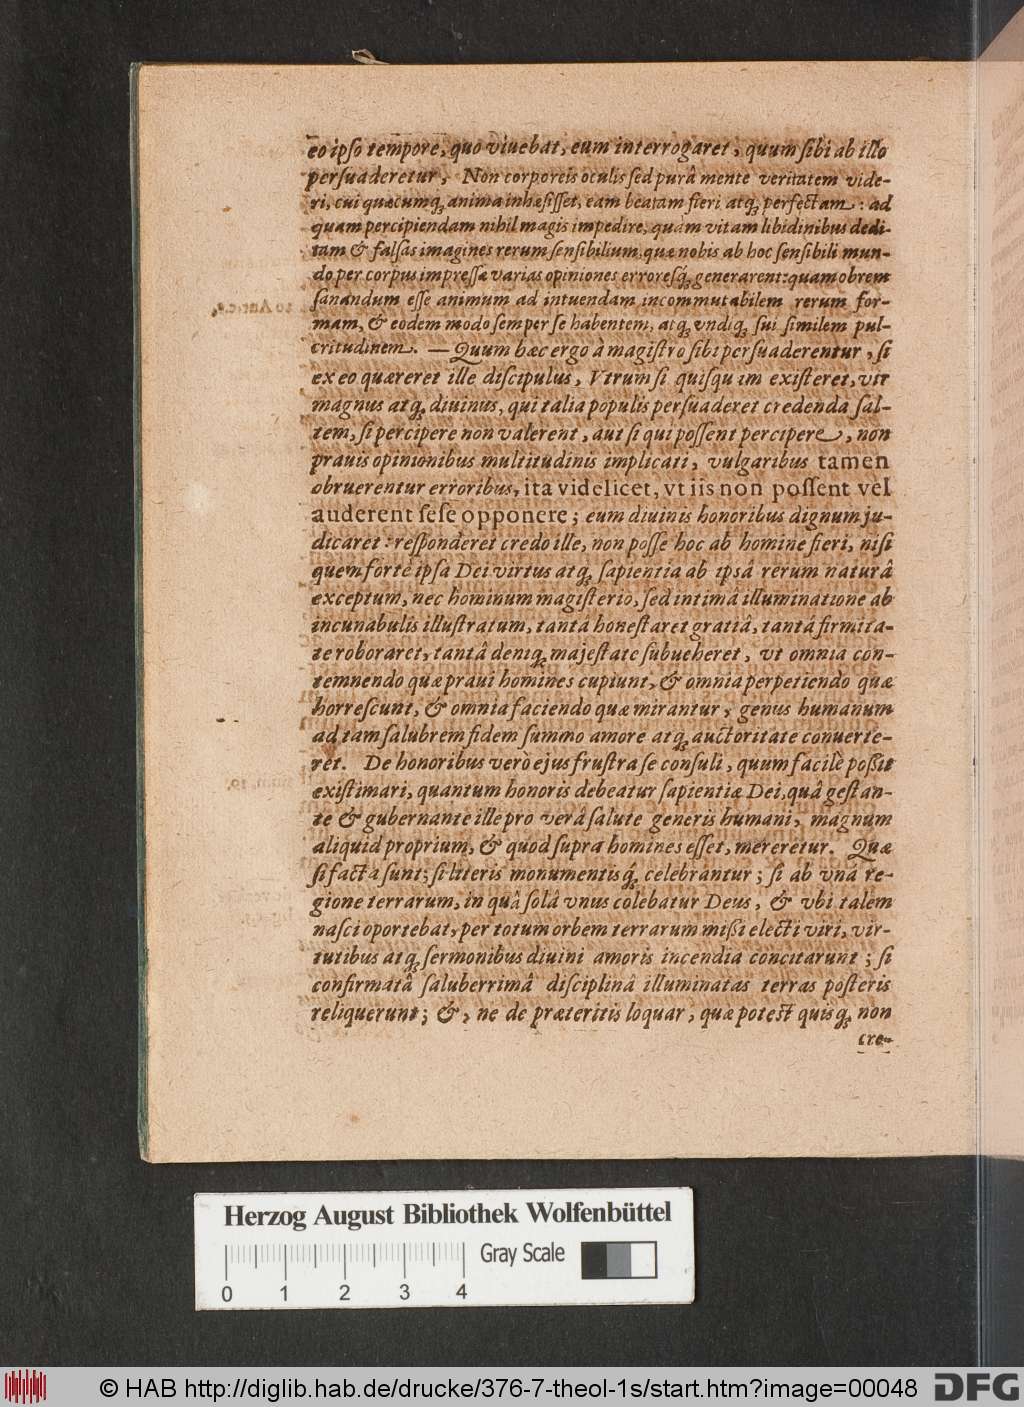 eo ipſo tempore, quo viuebat, eum interrogaret, quum ſibi ab illo
perſuaderetur, Non corporeis oculis ſed purâ mente veritatem vide-
ri, cui quæcumq; anima inhæſiſſet, eam beatam fieri atq; perfectam: ad
quam percipiendam nihil magis impedire, quàm vitam libidinibus dedi-
tam & falſas imagines rerum ſenſibilium, quæ nobis ab hoc ſenſibili mun-
do per corpus impreſſæ varias opiniones erroreſq; generarent: quamobrem
ſanandum eſſe animum ad intuendam incommutabilem rerum for-
mam, & eodem modo ſemper ſe habentem, atq; vndiq; ſui ſimilem pul-
critudinem. — Quum hæc ergo à magiſtro ſibi perſuaderentur, ſi
ex eo quæreret ille diſcipulus, Vtrum ſi quiſquam exiſteret, vir
magnus atq; diuinus, qui talia populis perſuaderet credenda ſal-
tem, ſi percipere non valerent, aut ſi qui poſſent percipere, non
prauis opinionibus multitudinis implicati, vulgaribus tamen
obruerentur erroribus, ita videlicet, vt iis non poſſent vel
auderent ſeſe opponere; eum diuinis honoribus dignum ju-
dicaret: reſponderet credo ille, non poſſe hoc ab homine fieri, niſi
quem fortè ipſa Dei virtus atq; ſapientia ab ipsâ rerum naturâ
exceptum, nec hominum magiſterio, ſed intimâ illuminatione ab
incunabulis illuſtratum, tantâ honeſtaret gratiâ, tantâ firmita-
te roboraret, tantâ deniq; majeſtate ſubueheret, vt omnia con-
temnendo quæ praui homines cupiunt, & omnia perpetiendo quæ
horreſcunt, & omnia faciendo quæ mirantur, genus humanum
ad tam ſalubrem fidem ſummo amore atq; auctoritate conuerte-
ret. De honoribus verò ejus fruſtra ſe conſuli, quum facilè poßit
exiſtimari, quantum honoris debeatur ſapientiæ Dei, quâ geſtan-
te & gubernante ille pro verâ ſalute generis humani, magnum
aliquid proprium, & quod ſupra homines eſſet, mereretur. Quæ
ſi facta ſunt; ſi literis monumentisq; celebrantur; ſi ab vnâ re-
gione terrarum, in quâ ſolâ vnus colebatur Deus, & vbi talem
naſci oportebat, per totum orbem terrarum mißi electi viri, vir-
tutibus atq; ſermonibus diuini amoris incendia concitarunt; ſi
confirmatâ ſaluberrimâ diſciplinâ illuminatas terras poſteris
reliquerunt; &, ne de præteritis loquar, quæ poteſt quisq; non
cre-
Herzog August Bibliothek Wolfenbüttel
Gray Scale
0 1 2 3 4
© HAB http://diglib.hab.de/drucke/376-7-theol-1s/start.htm?image=00048
DFG